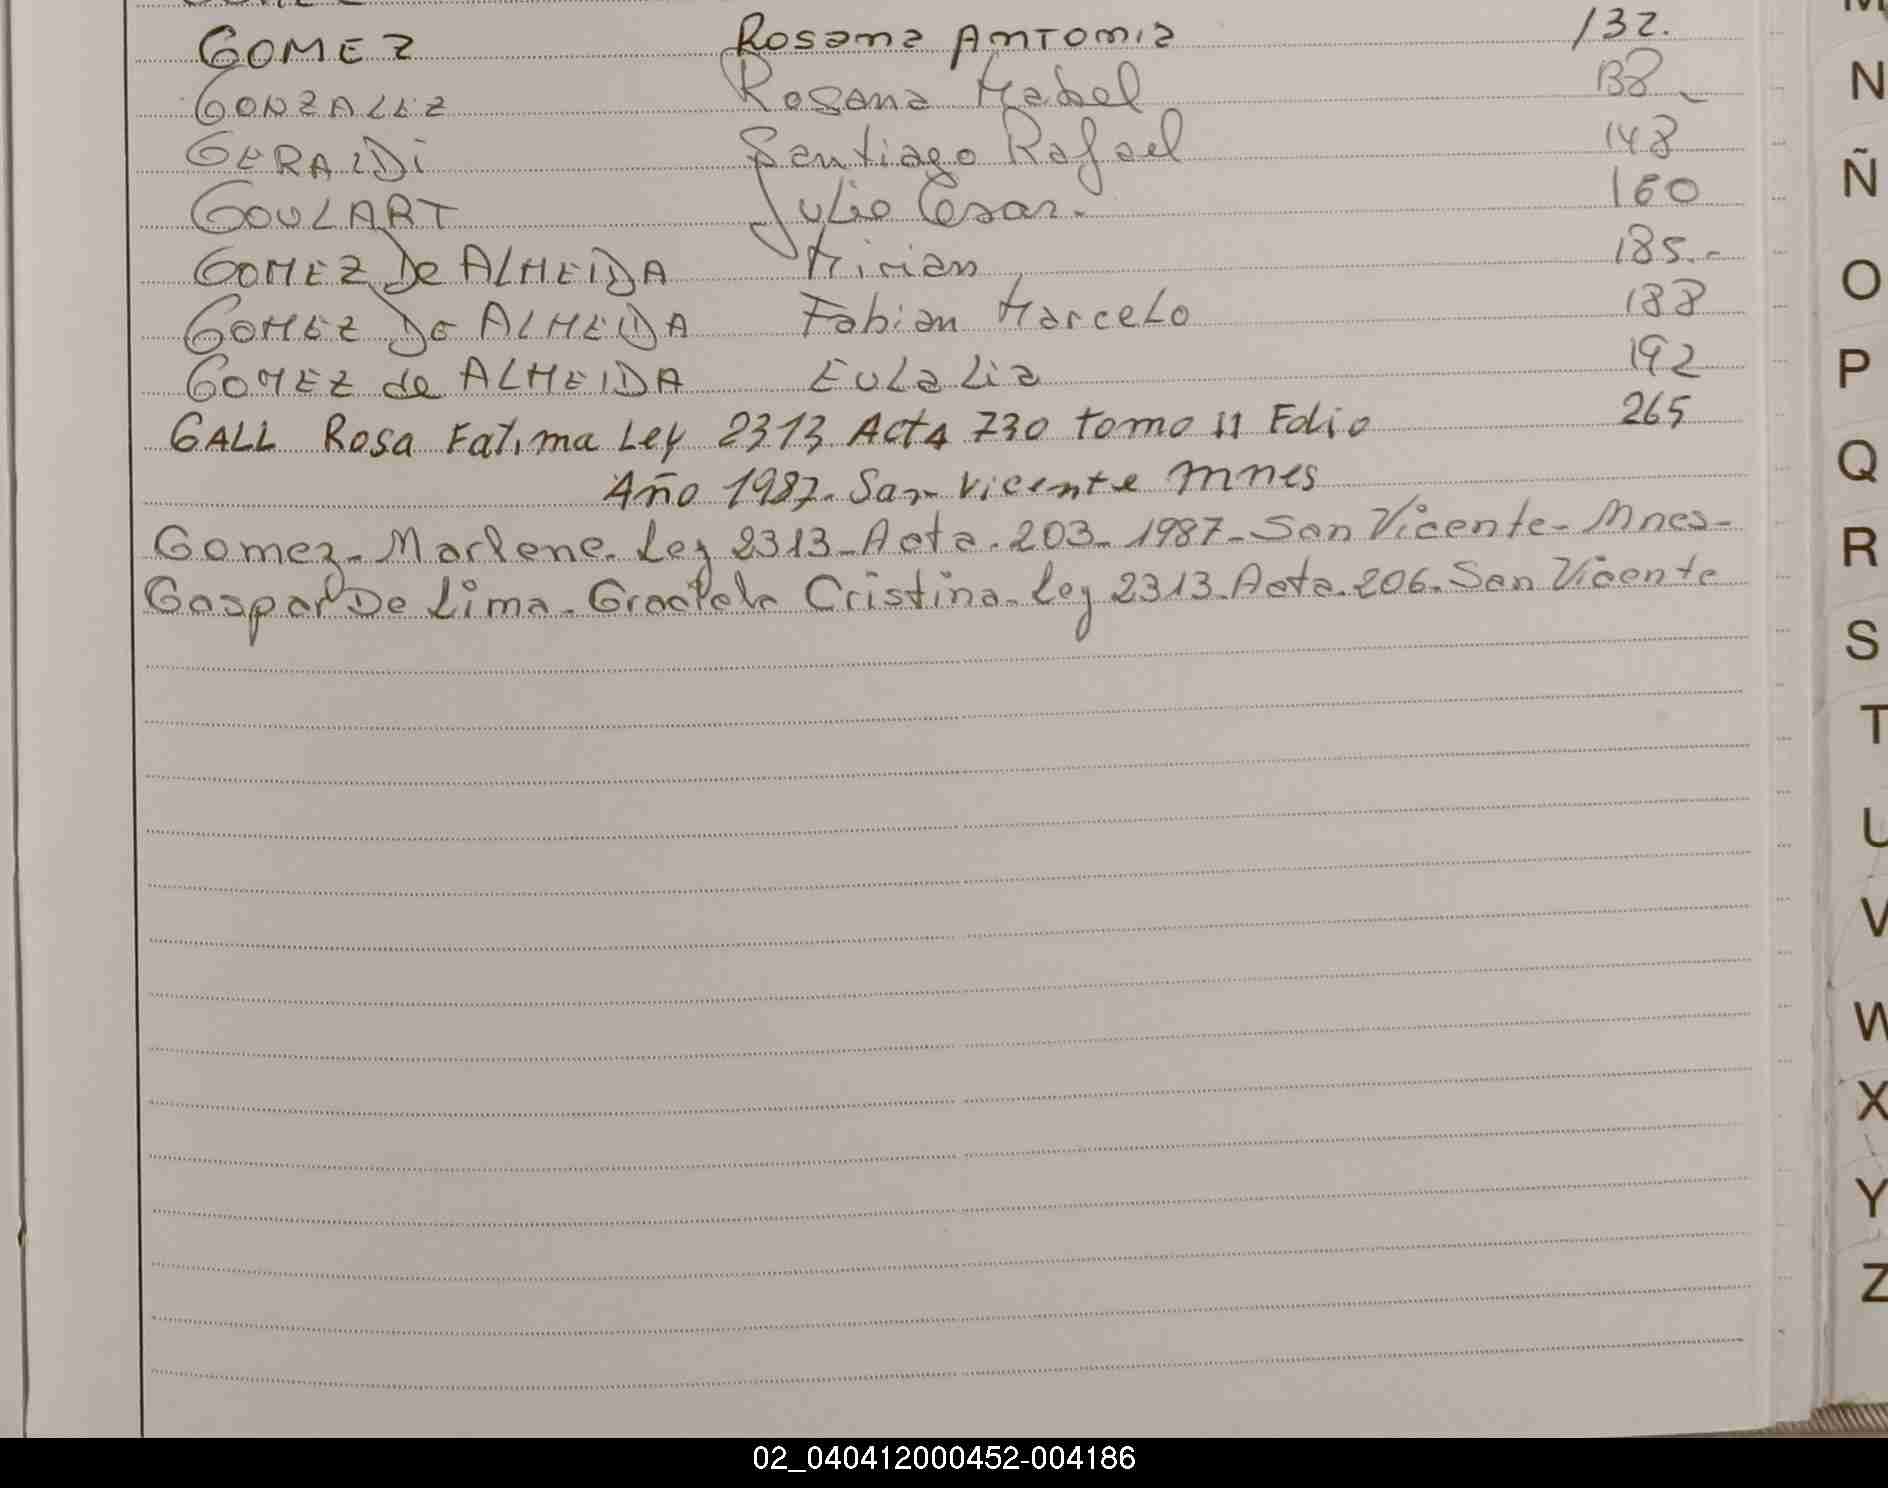 GOMEZ Rosana Antonia 132.
GONZALEZ Rosana Mabel 138-
GERALDi Santiago Rafael 148
GOULART Julio Cesar. 160
GOMEZ De ALMEIDA Mirian 185.-
GOMEZ De ALMEIDA Fabian Marcelo 188
GOMEZ de ALMEIDA Eulalia 192
GALL Rosa Fatima Ley 2313 Acta 730 tomo II Folio 265
Año 1987- San Vicente Mnes
Gomez- Marlene. Ley 2313-Acta.203-1987-San Vicente-Mnes-
Gaspar De Lima-Graciela Cristina-Ley 2313-Acta.206-San Vicente
M
N
Ñ
O
P
Q
R
S
T
U
V
W
X
Y
Z
02_040412000452-004186